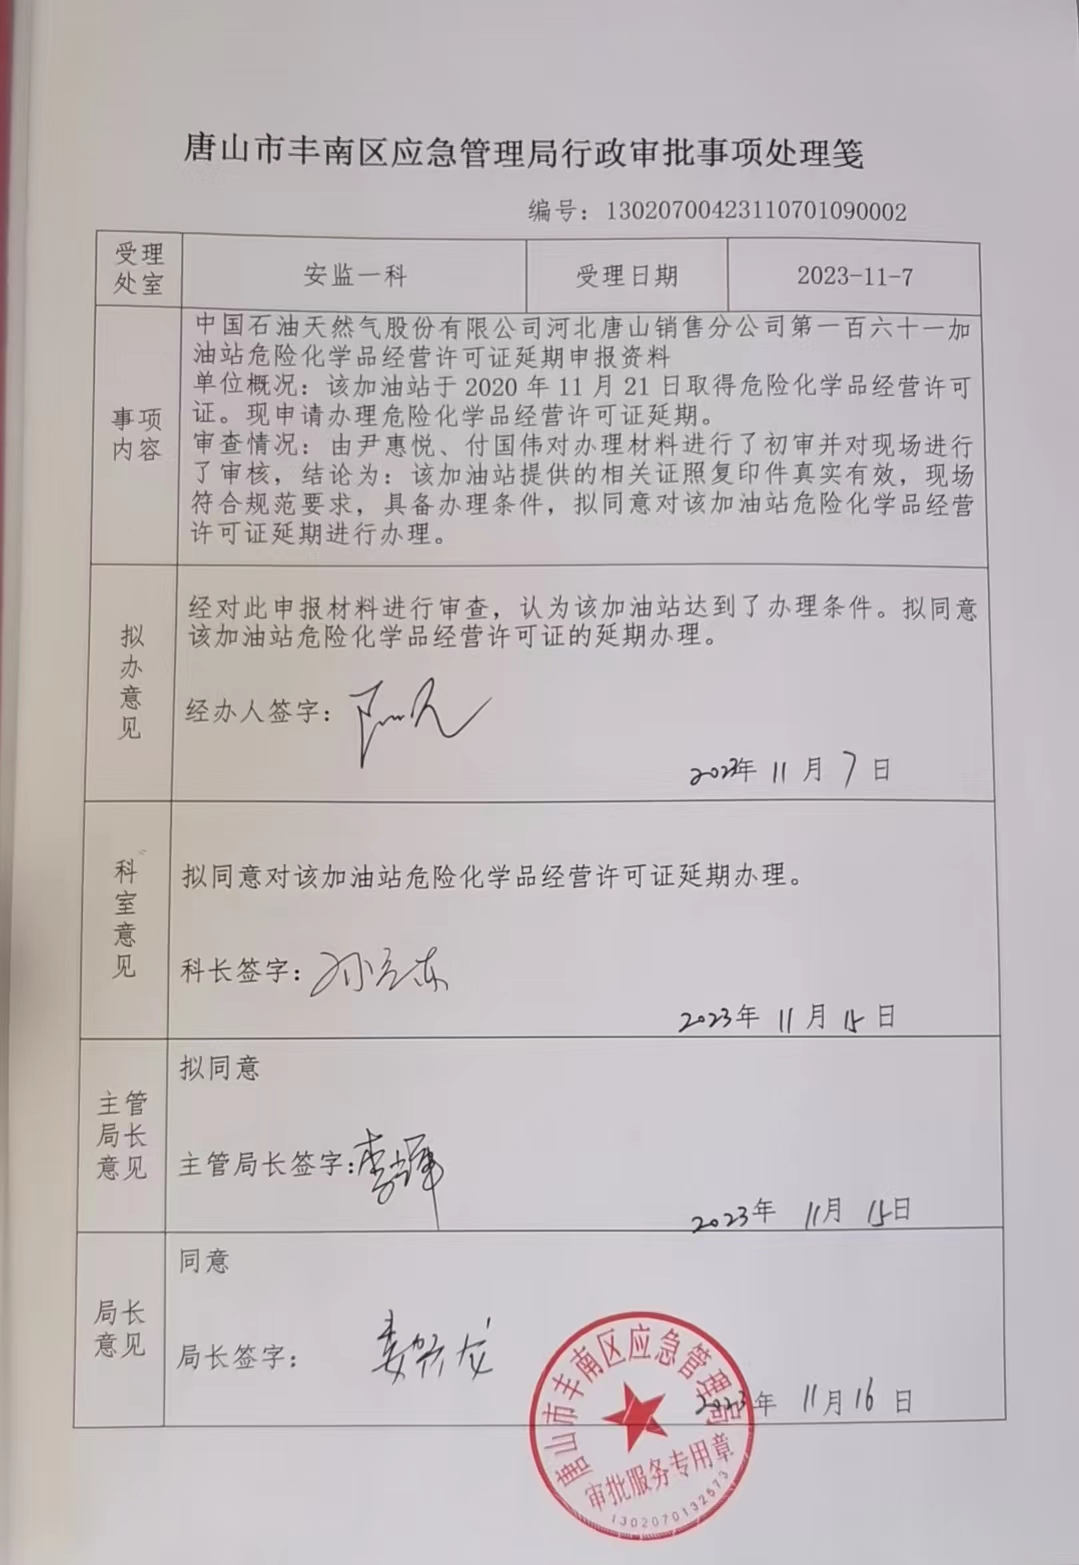 唐山市丰南区应急管理局行政审批事项处理笺
编号：13020700423110701090002
受理处室
安监一科
受理日期
2023-11-7
事项内容
中国石油天然气股份有限公司河北唐山销售分公司第一百六十一加
油站危险化学品经营许可证延期申报资料
单位概况：该加油站于 2020 年 11 月 21 日取得危险化学品经营许可
证。现申请办理危险化学品经营许可证延期。
审查情况：由尹惠悦、付国伟对办理材料进行了初审并对现场进行
了审核，结论为：该加油站提供的相关证照复印件真实有效，现场
符合规范要求，具备办理条件，拟同意对该加油站危险化学品经营
许可证延期进行办理。
拟办意见
经对此申报材料进行审查，认为该加油站达到了办理条件。拟同意
该加油站危险化学品经营许可证的延期办理。
经办人签字：
2023年 11 月 7 日
科室意见
拟同意对该加油站危险化学品经营许可证延期办理。
科长签字：孙立东
2023年 11 月 15 日
主管局长意见
拟同意
主管局长签字：
2023年 11月 15日
局长意见
同意
局长签字：
2023年 11月16日
唐山市丰南区应急管理局
审批服务专用章
1302070132673